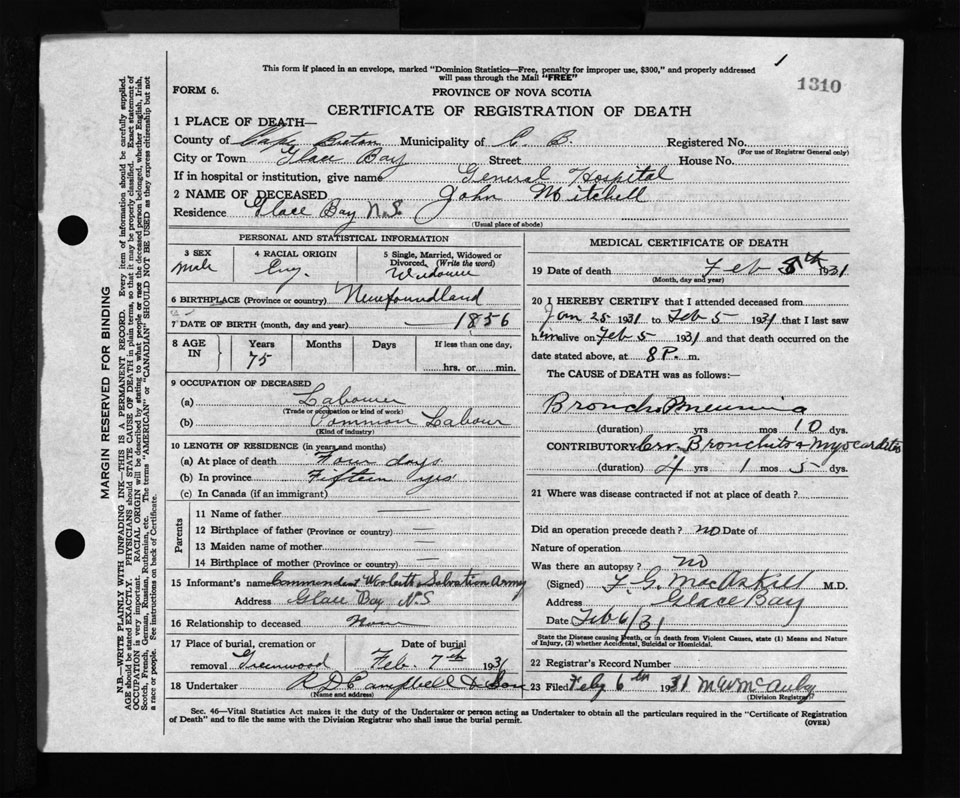 1
1310
This form if placed in an envelope, marked "Dominion Statistics—Free, penalty for improper use, $300," and properly addressed
will pass through the Mail "FREE"
FORM 6.
PROVINCE OF NOVA SCOTIA
CERTIFICATE OF REGISTRATION OF DEATH
1 PLACE OF DEATH—
County of Cape Breton Municipality of C. B. Registered No.
(For use of Registrar General only)
City or Town Glace Bay Street House No.
If in hospital or institution, give name General Hospital
2 NAME OF DECEASED John Mitchell
Residence Glace Bay N.S.
(Usual place of abode)
PERSONAL AND STATISTICAL INFORMATION
3 SEX male
4 RACIAL ORIGIN Eng.
5 Single, Married, Widowed or Divorced. (Write the word) Widower
6 BIRTHPLACE (Province or country) Newfoundland
7 DATE OF BIRTH (month, day and year) — 1856
8 AGE IN Years Months Days If less than one day,
75 hrs. or min.
9 OCCUPATION OF DECEASED
(a) Labourer
(Trade or occupation or kind of work)
(b) Common Labour
(Kind of industry)
10 LENGTH OF RESIDENCE (in years and months)
(a) At place of death Four days
(b) In province Fifteen yrs
(c) In Canada (if an immigrant)
Parents
11 Name of father —
12 Birthplace of father (Province or country) —
13 Maiden name of mother —
14 Birthplace of mother (Province or country) —
15 Informant's name Commandant Salvation Army
Address Glace Bay N.S
16 Relationship to deceased None
17 Place of burial, cremation or removal Greenwood
Date of burial Feb. 7th 1931
18 Undertaker R D Campbell & Son
(Name and address)
MEDICAL CERTIFICATE OF DEATH
19 Date of death Feb 5th 1931
(Month, day and year)
20 I HEREBY CERTIFY that I attended deceased from
Jan 25 1931 to Feb 5 1931 that I last saw
him alive on Feb 5 1931 and that death occurred on the
date stated above, at 8 P. m.
The CAUSE of DEATH was as follows:—
Broncho Pneumonia
(duration) yrs mos 10 dys.
CONTRIBUTORY Bronchitis & Myocarditis
(duration) 4 yrs 1 mos 5 dys.
21 Where was disease contracted if not at place of death?
Did an operation precede death? no Date of
Nature of operation
Was there an autopsy? no
(Signed) F. G. MacAskill M.D.
Address Glace Bay
Date Feb 6/31
State the Disease causing Death, or in death from Violent Causes, state (1) Means and Nature
of Injury, (2) whether Accidental, Suicidal or Homicidal.
22 Registrar's Record Number
23 Filed Feby 6th 1931
(Division Registrar)
Sec. 46—Vital Statistics Act makes it the duty of the Undertaker or person acting as Undertaker to obtain all the particulars required in the "Certificate of Registration
of Death" and to file the same with the Division Registrar who shall issue the burial permit.
(OVER)
MARGIN RESERVED FOR BINDING
N.B.—WRITE PLAINLY WITH UNFADING INK—THIS IS A PERMANENT RECORD. Every item of information should be carefully supplied.
AGE should be stated EXACTLY. PHYSICIANS should STATE CAUSE OF DEATH in plain terms, so that it may be properly classified. Exact statement of
OCCUPATION is very important. RACIAL ORIGIN will be described by stating to what people or race the deceased person belonged, whether English, Irish,
Scotch, French, German, Russian, Ruthenian, etc. The terms "AMERICAN" or "CANADIAN" SHOULD NOT BE USED as they express citizenship but not
a race or people. See instructions on back of Certificate.